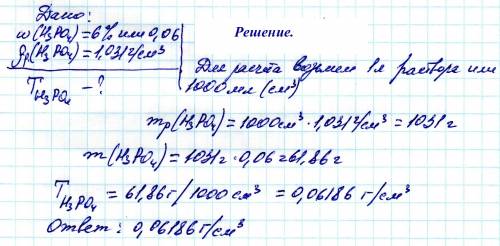 Дано:
ω(H₃PO₄)=6% или 0,06
ρр(H₃PO₄)=1,031г/см³
T H₃PO₄ – ?
Решение.
Для расчёта возьмем 1л раствора или
1000мл (см³)
mр(H₃PO₄)=1000см³·1,031г/см³=1031г
m(H₃PO₄)=1031г·0,06=61,86г
T H₃PO₄=61,86г/1000см³=0,06186 г/см³
Ответ: 0,06186г/см³